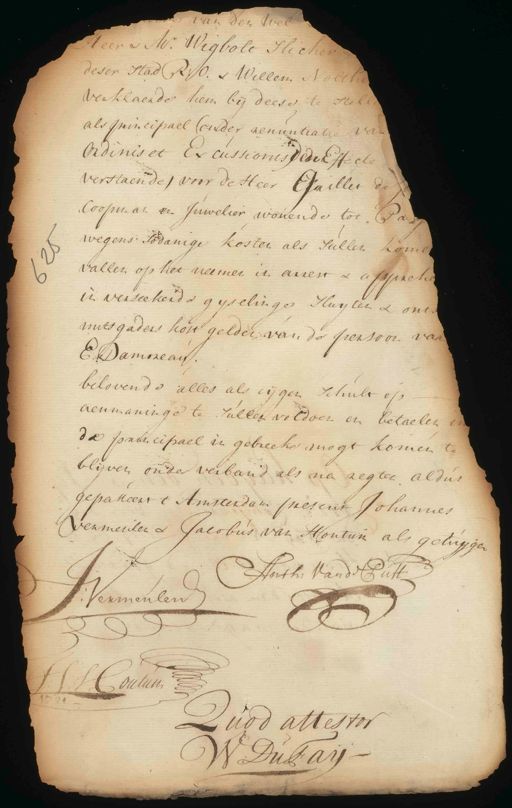 van den Wel
Heer & Mr. Wigbolt Slicher
deser Stad R.O. & Willem
verklaerde hem bij deese te stell
als principael (onder renuntiatie van
Ordinis et Excussionis
verstaende) voor de Heer Guillet de
Coopman en Juwelier wonende tot Par
wegens sodanige kosten als sullen komen
vallen op het neemen in arrest & apprehe
in verseekerde gyselinge sluyten & ont
mitsgaders kost gelden van de persoon van
E. Damoreau.
belovende alles als eijgen schult op
aenmaninge te sullen voldoen en betaelen in
de principael in gebreeke mogt komen te
blijven onder verband als na regte. aldus
gepasseert t Amsterdam present Johannes
Vermeulen & Jacobus van Houtum als getuijgen
625
Anth. Vand. Putt
J. Vermeulen
Houtum
Quod attestor
W. Du Fay